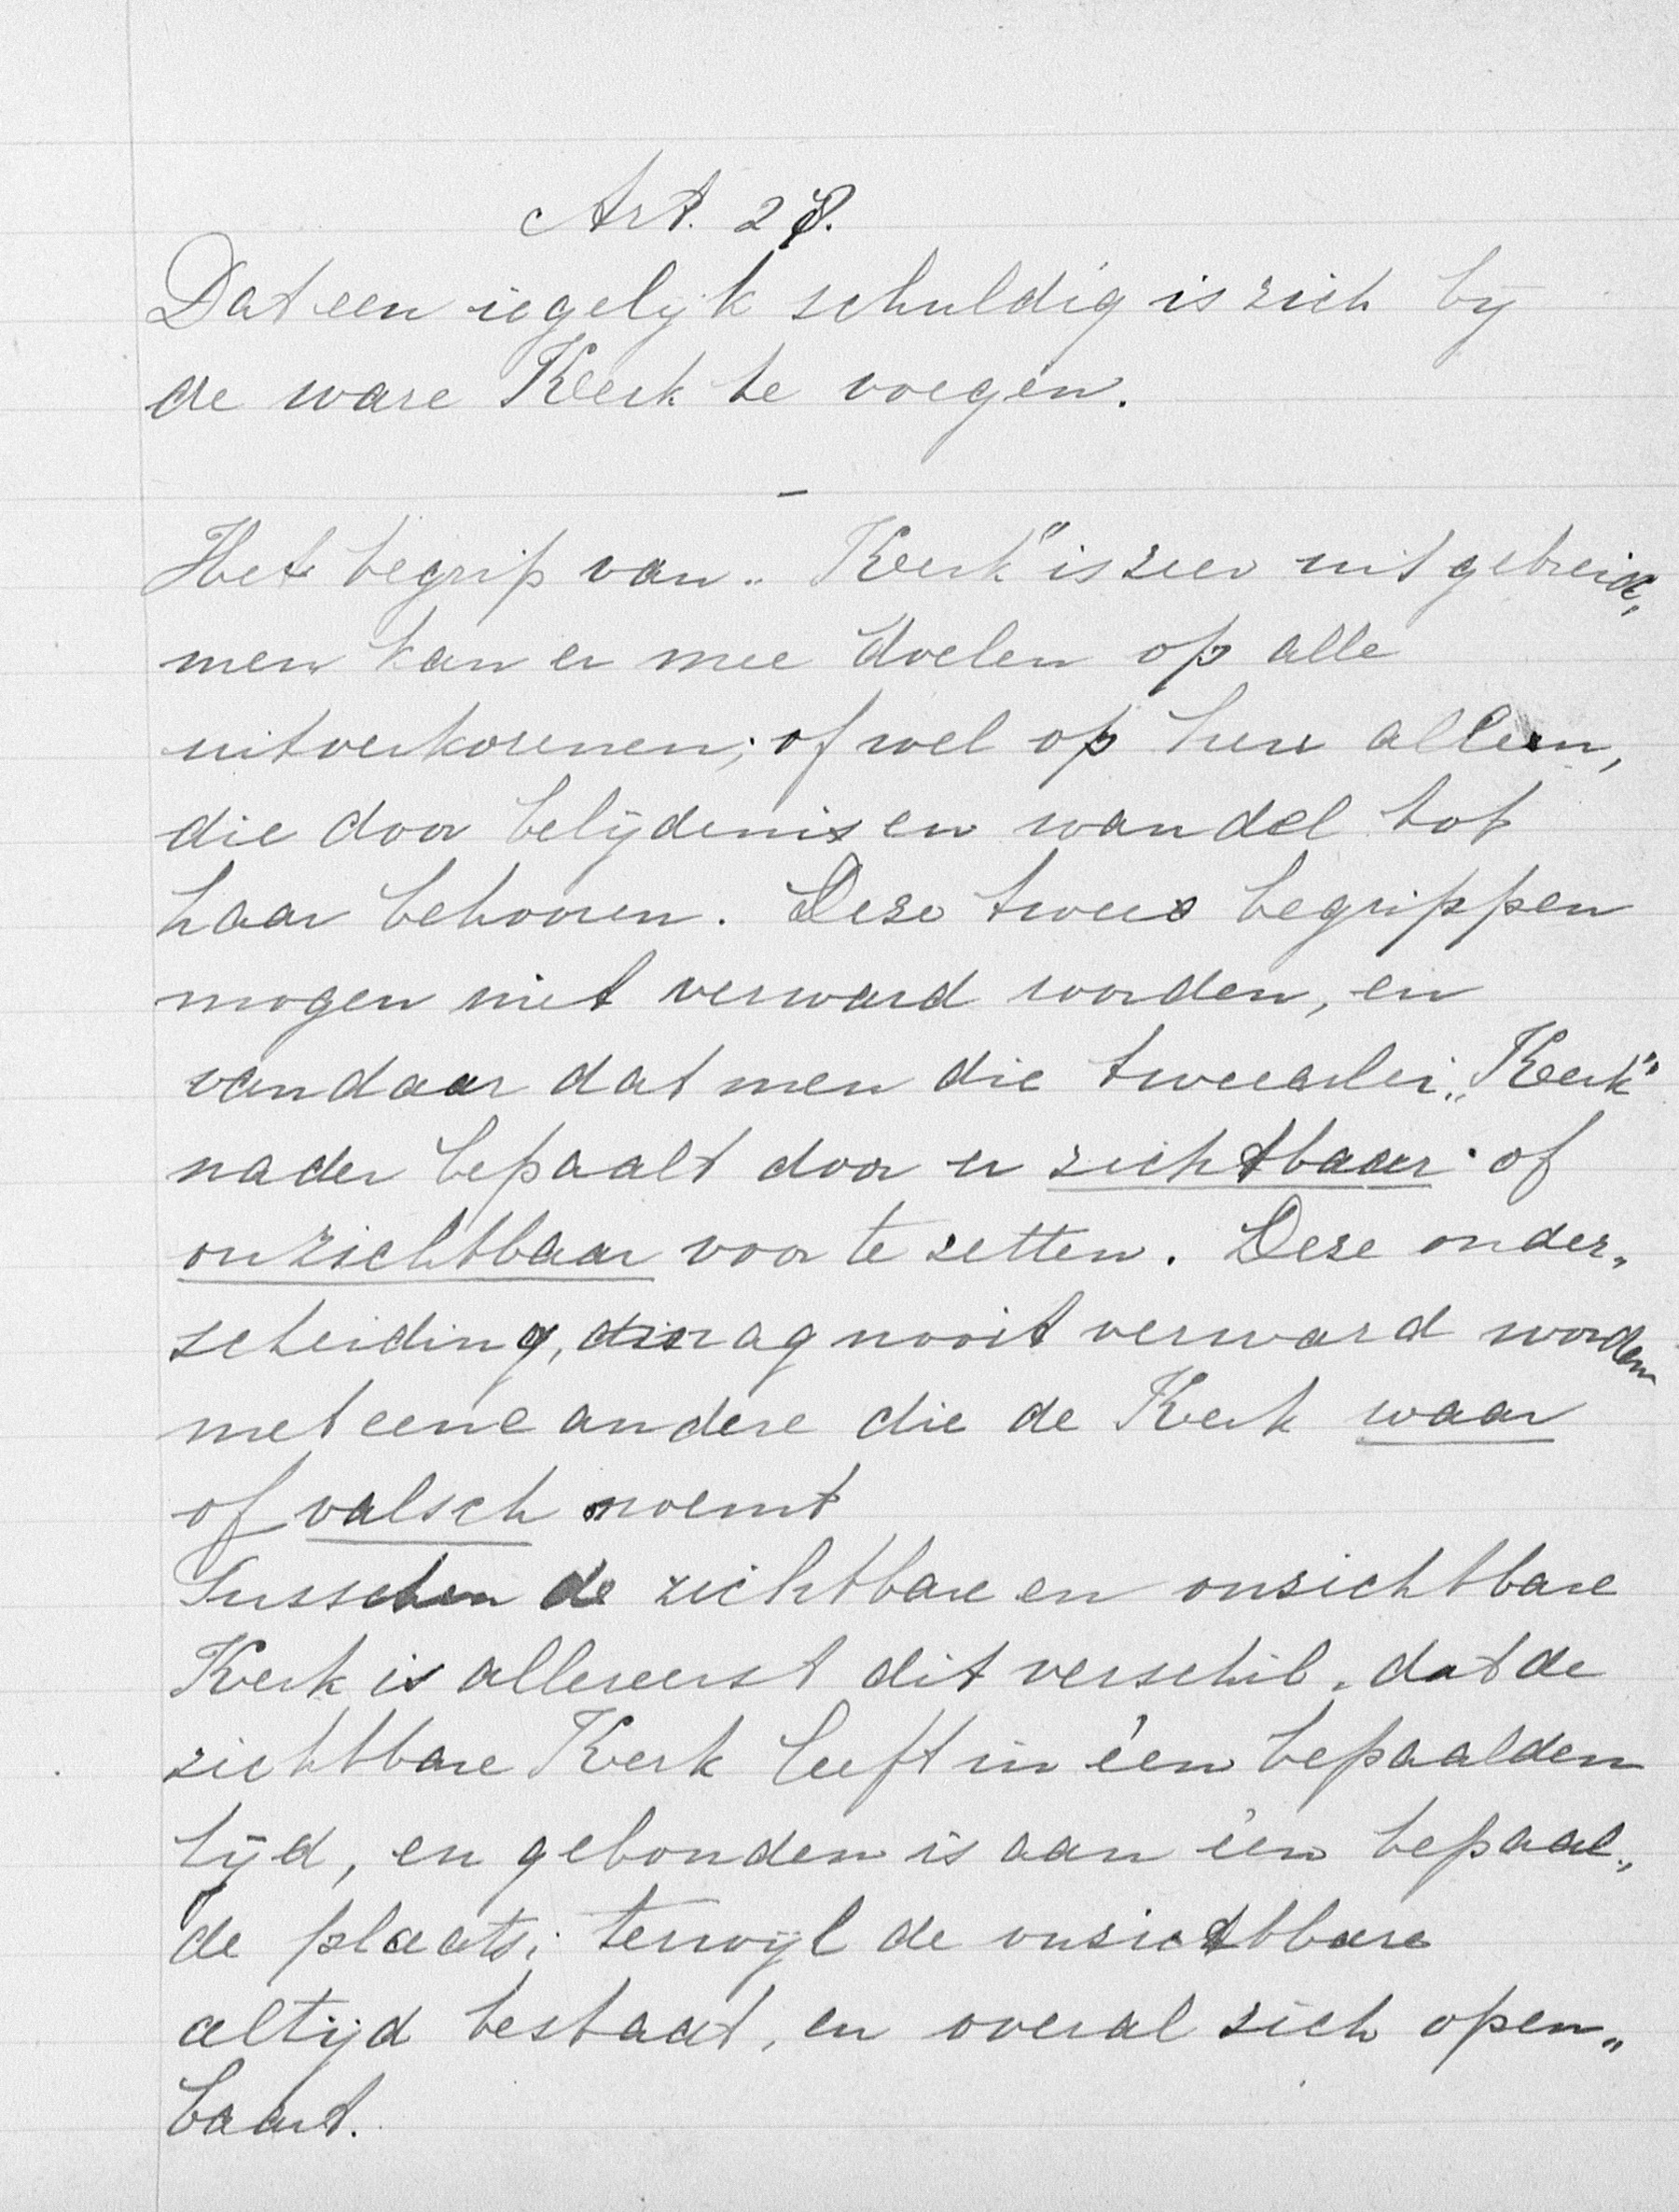 Art. 28.
Dat een iegelijk schuldig is zich bij
de ware Kerk te voegen.
–
Het begrip van „Kerk" is zeer uitgebreid,
men kan er mee doelen op alle
uitverkorenen; of wel op hen alleen,
die door belijdenis en wandel tot
haar behooren. Deze twee begrippen
mogen niet verward worden, en
vandaar dat men die tweeerlei „Kerk"
nader bepaalt door er zichtbaar of
onzichtbaar voor te zetten. Deze onder„
scheiding, mag nooit verward worden
met eene andere die de Kerk waar
of valsch noemt
Tusschen de zichtbare en onzichtbare
Kerk is allereerst dit verschil, dat de
zichtbare Kerk leeft in één bepaalden
tijd, en gebonden is aan één bepaal„
de plaats; terwijl de onzichtbare
altijd bestaat, en overal zich open„
baart.